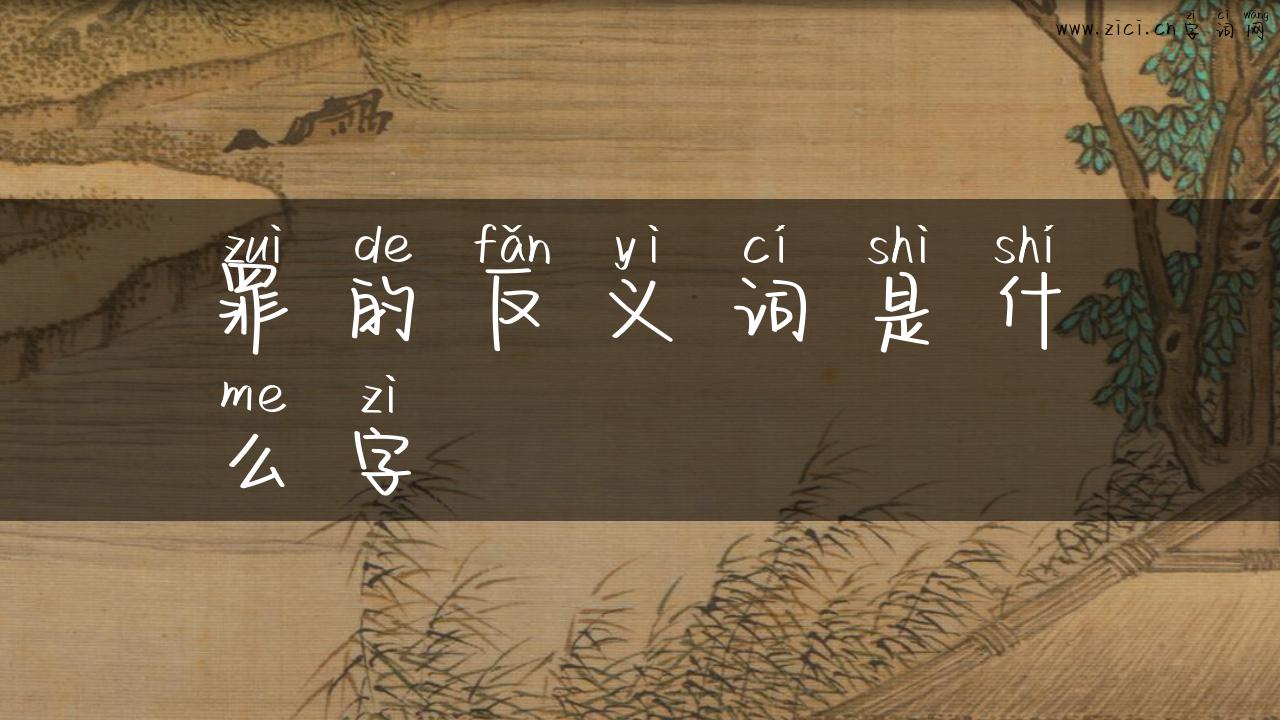 zì cí wǎng
www.zici.cn字词网
zuì de fǎn yì cí shì shí
罪的反义词是什
me zì
么字